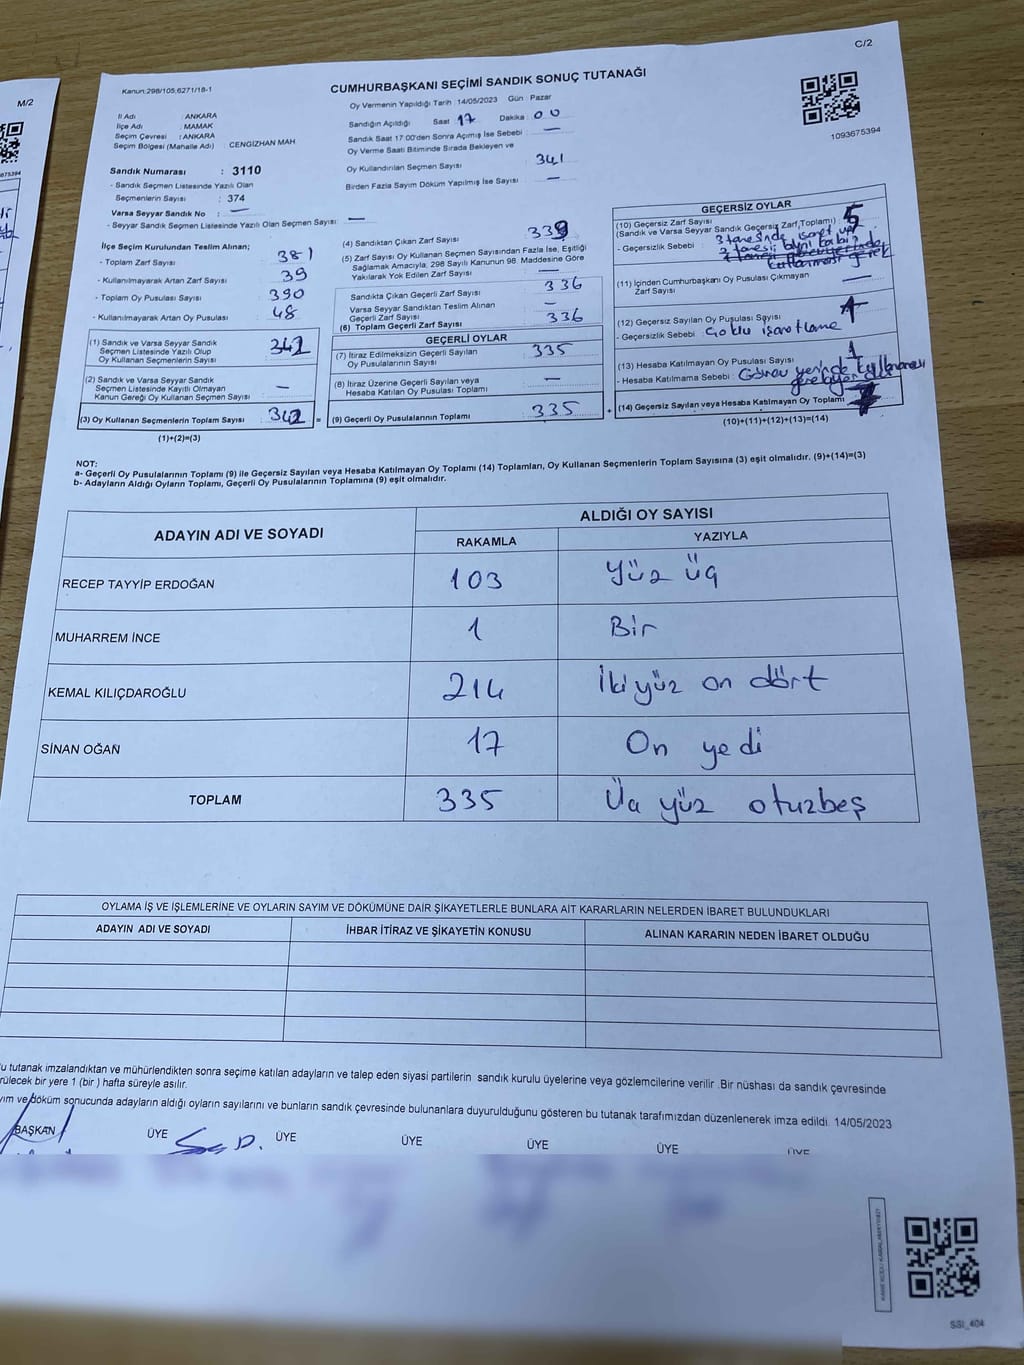 M/2
C/2
Kanun:298/105,6271/18-1
CUMHURBAŞKANI SEÇİMİ SANDIK SONUÇ TUTANAĞI
1093675394
İl Adı : ANKARA
İlçe Adı : MAMAK
Seçim Çevresi : ANKARA
Seçim Bölgesi (Mahalle Adı) CENGİZHAN MAH
Sandık Numarası : 3110
- Sandık Seçmen Listesinde Yazılı Olan
Seçmenlerin Sayısı : 374
Varsa Seyyar Sandık No : —
- Seyyar Sandık Seçmen Listesinde Yazılı Olan Seçmen Sayısı: —
Oy Vermenin Yapıldığı Tarih :14/05/2023 Gün : Pazar
Sandığın Açıldığı Saat 17 Dakika : 00
Sandık Saat 17:00'den Sonra Açımış İse Sebebi : —
Oy Verme Saati Bitiminde Sırada Bekleyen ve
Oy Kullandırılan Seçmen Sayısı 341
Birden Fazla Sayım Döküm Yapılmış İse Sayısı : —
İlçe Seçim Kurulundan Teslim Alınan;
- Toplam Zarf Sayısı : 381
- Kullanılmayarak Artan Zarf Sayısı : 39
- Toplam Oy Pusulası Sayısı : 390
- Kullanılmayarak Artan Oy Pusulası : 48
(1) Sandık ve Varsa Seyyar Sandık
Seçmen Listesinde Yazılı Olup
Oy Kullanan Seçmenlerin Sayısı : 342
(2) Sandık ve Varsa Seyyar Sandık
Seçmen Listesinde Kayıtlı Olmayan
Kanun Gereği Oy Kullanan Seçmen Sayısı : —
(3) Oy Kullanan Seçmenlerin Toplam Sayısı : 342 =
(1)+(2)=(3)
(4) Sandıktan Çıkan Zarf Sayısı : 339
(5) Zarf Sayısı Oy Kullanan Seçmen Sayısından Fazla İse, Eşitliği
Sağlamak Amacıyla, 298 Sayılı Kanunun 98. Maddesine Göre
Yakılarak Yok Edilen Zarf Sayısı : —
Sandıkta Çıkan Geçerli Zarf Sayısı : 336
Varsa Seyyar Sandıktan Teslim Alınan
Geçerli Zarf Sayısı : —
(6) Toplam Geçerli Zarf Sayısı : 336
GEÇERLİ OYLAR
(7) İtiraz Edilmeksizin Geçerli Sayılan
Oy Pusulalarının Sayısı : 335
(8) İtiraz Üzerine Geçerli Sayılan veya
Hesaba Katılan Oy Pusulası Sayısı : —
(9) Geçerli Oy Pusulalarının Toplamı : 335 +
GEÇERSİZ OYLAR
(10) Geçersiz Zarf Sayısı
(Sandık ve Varsa Seyyar Sandık Geçersiz Zarf Toplamı) : 5
- Geçersizlik Sebebi : 3 tanesinde işaret var
(11) İçinden Cumhurbaşkanı Oy Pusulası Çıkmayan
Zarf Sayısı : —
(12) Geçersiz Sayılan Oy Pusulası Sayısı : 1
- Geçersizlik Sebebi : Çoklu işaretleme
(13) Hesaba Katılmayan Oy Pusulası Sayısı : 1
- Hesaba Katılmama Sebebi : yerinde kullanması
(14) Geçersiz Sayılan veya Hesaba Katılmayan Oy Toplamı : 7
(10)+(11)+(12)+(13)=(14)
NOT:
a- Geçerli Oy Pusulalarının Toplamı (9) ile Geçersiz Sayılan veya Hesaba Katılmayan Oy Toplamı (14) Toplamları, Oy Kullanan Seçmenlerin Toplam Sayısına (3) eşit olmalıdır. (9)+(14)=(3)
b- Adayların Aldığı Oyların Toplamı, Geçerli Oy Pusulalarının Toplamına (9) eşit olmalıdır.
ADAYIN ADI VE SOYADI
ALDIĞI OY SAYISI
RAKAMLA YAZIYLA
RECEP TAYYİP ERDOĞAN 103 Yüz üç
MUHARREM İNCE 1 Bir
KEMAL KILIÇDAROĞLU 214 İkiyüz on dört
SİNAN OĞAN 17 On yedi
TOPLAM 335 Üç yüz otuzbeş
OYLAMA İŞ VE İŞLEMLERİNE VE OYLARIN SAYIM VE DÖKÜMÜNE DAİR ŞİKAYETLERLE BUNLARA AİT KARARLARIN NELERDEN İBARET BULUNDUKLARI
ADAYIN ADI VE SOYADI İHBAR İTİRAZ VE ŞİKAYETİN KONUSU ALINAN KARARIN NEDEN İBARET OLDUĞU
u tutanak imzalandıktan ve mühürlendikten sonra seçime katılan adayların ve talep eden siyasi partilerin sandık kurulu üyelerine veya gözlemcilerine verilir .Bir nüshası da sandık çevresinde
rülecek bir yere 1 (bir ) hafta süreyle asılır.
yım ve döküm sonucunda adayların aldığı oyların sayılarını ve bunların sandık çevresinde bulunanlara duyurulduğunu gösteren bu tutanak tarafımızdan düzenlenerek imza edildi. 14/05/2023
BAŞKAN ÜYE ÜYE ÜYE ÜYE ÜYE ÜYE
SSI_404